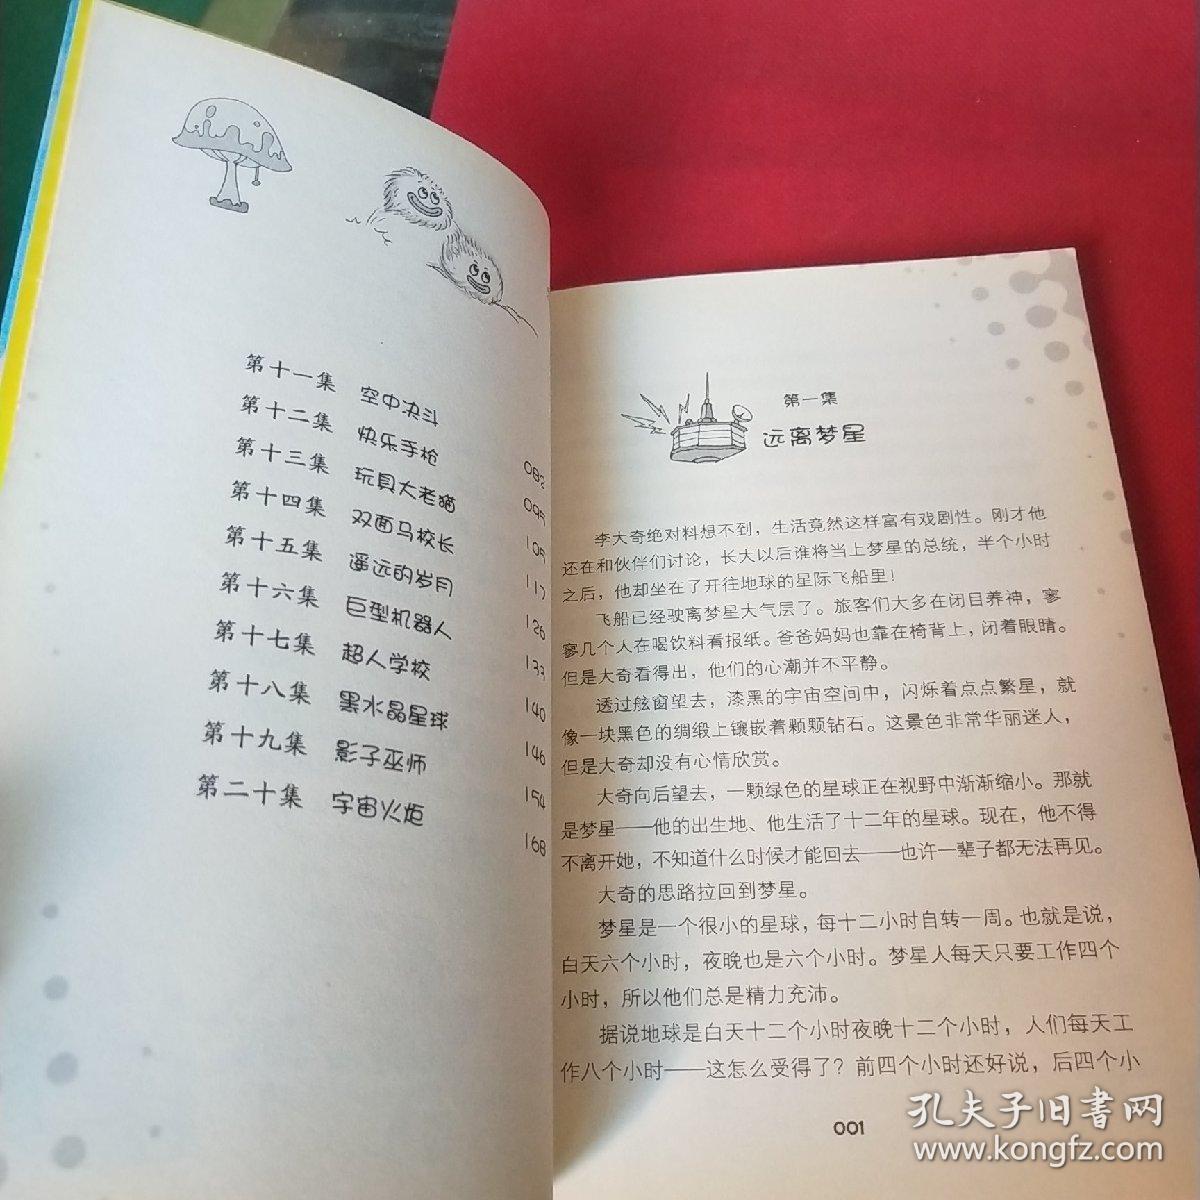 第十一集 空中决斗 082
第十二集 快乐手枪 095
第十三集 玩具大老猫 105
第十四集 双面马校长 117
第十五集 遥远的岁月 126
第十六集 巨型机器人 133
第十七集 超人学校 140
第十八集 黑水晶星球 146
第十九集 影子巫师 154
第二十集 宇宙火炬 168
第一集
远离梦星
李大奇绝对料想不到，生活竟然这样富有戏剧性。刚才他
还在和伙伴们讨论，长大以后谁将当上梦星的总统，半个小时
之后，他却坐在了开往地球的星际飞船里！
飞船已经驶离梦星大气层了。旅客们大多在闭目养神，寥
寥几个人在喝饮料看报纸。爸爸妈妈也靠在椅背上，闭着眼睛。
但是大奇看得出，他们的心潮并不平静。
透过舷窗望去，漆黑的宇宙空间中，闪烁着点点繁星，就
像一块黑色的绸缎上镶嵌着颗颗钻石。这景色非常华丽迷人，
但是大奇却没有心情欣赏。
大奇向后望去，一颗绿色的星球正在视野中渐渐缩小。那就
是梦星——他的出生地、他生活了十二年的星球。现在，他不得
不离开她，不知道什么时候才能回去——也许一辈子都无法再见。
大奇的思路拉回到梦星。
梦星是一个很小的星球，每十二小时自转一周。也就是说，
白天六个小时，夜晚也是六个小时。梦星人每天只要工作四个
小时，所以他们总是精力充沛。
据说地球是白天十二个小时夜晚十二个小时，人们每天工
作八个小时——这怎么受得了？前四个小时还好说，后四个小
001
孔夫子旧书网
www.kongfz.com